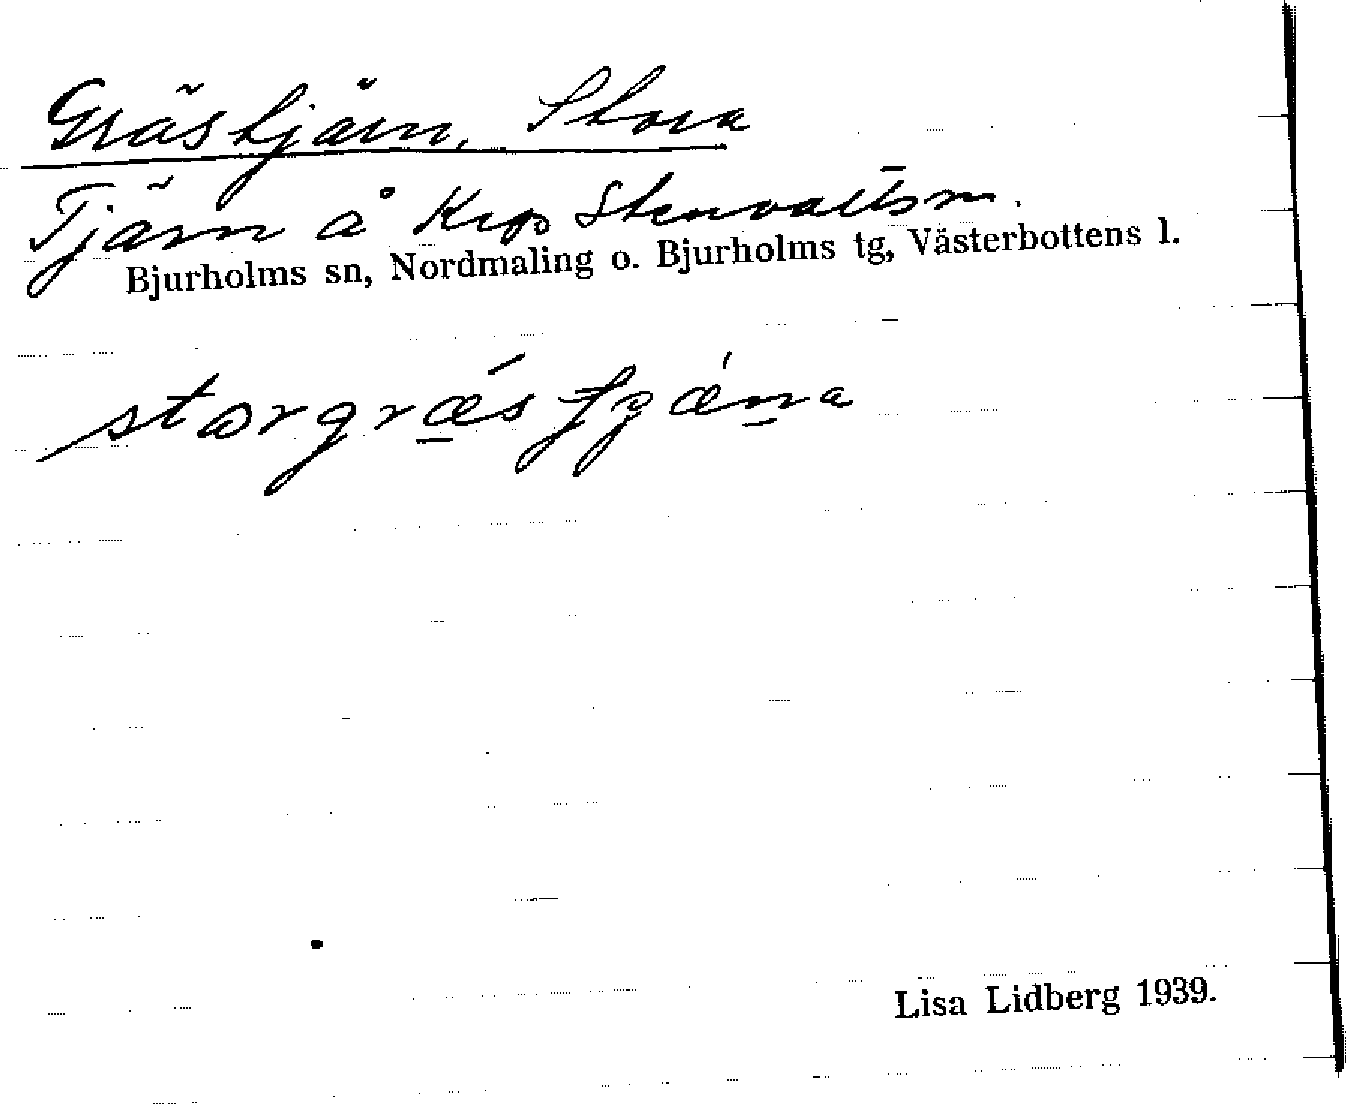 Grästjärn, Stora
Tjärn å Krp Stenvattsm.
Bjurholms sn, Nordmaling o. Bjurholms tg, Västerbottens l.
Lisa Lidberg 1939.